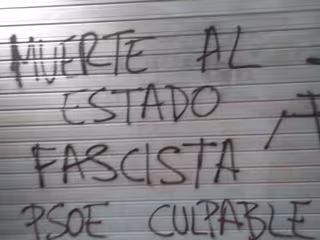 MUERTE AL
ESTADO
FASCISTA
PSOE CULPABLE